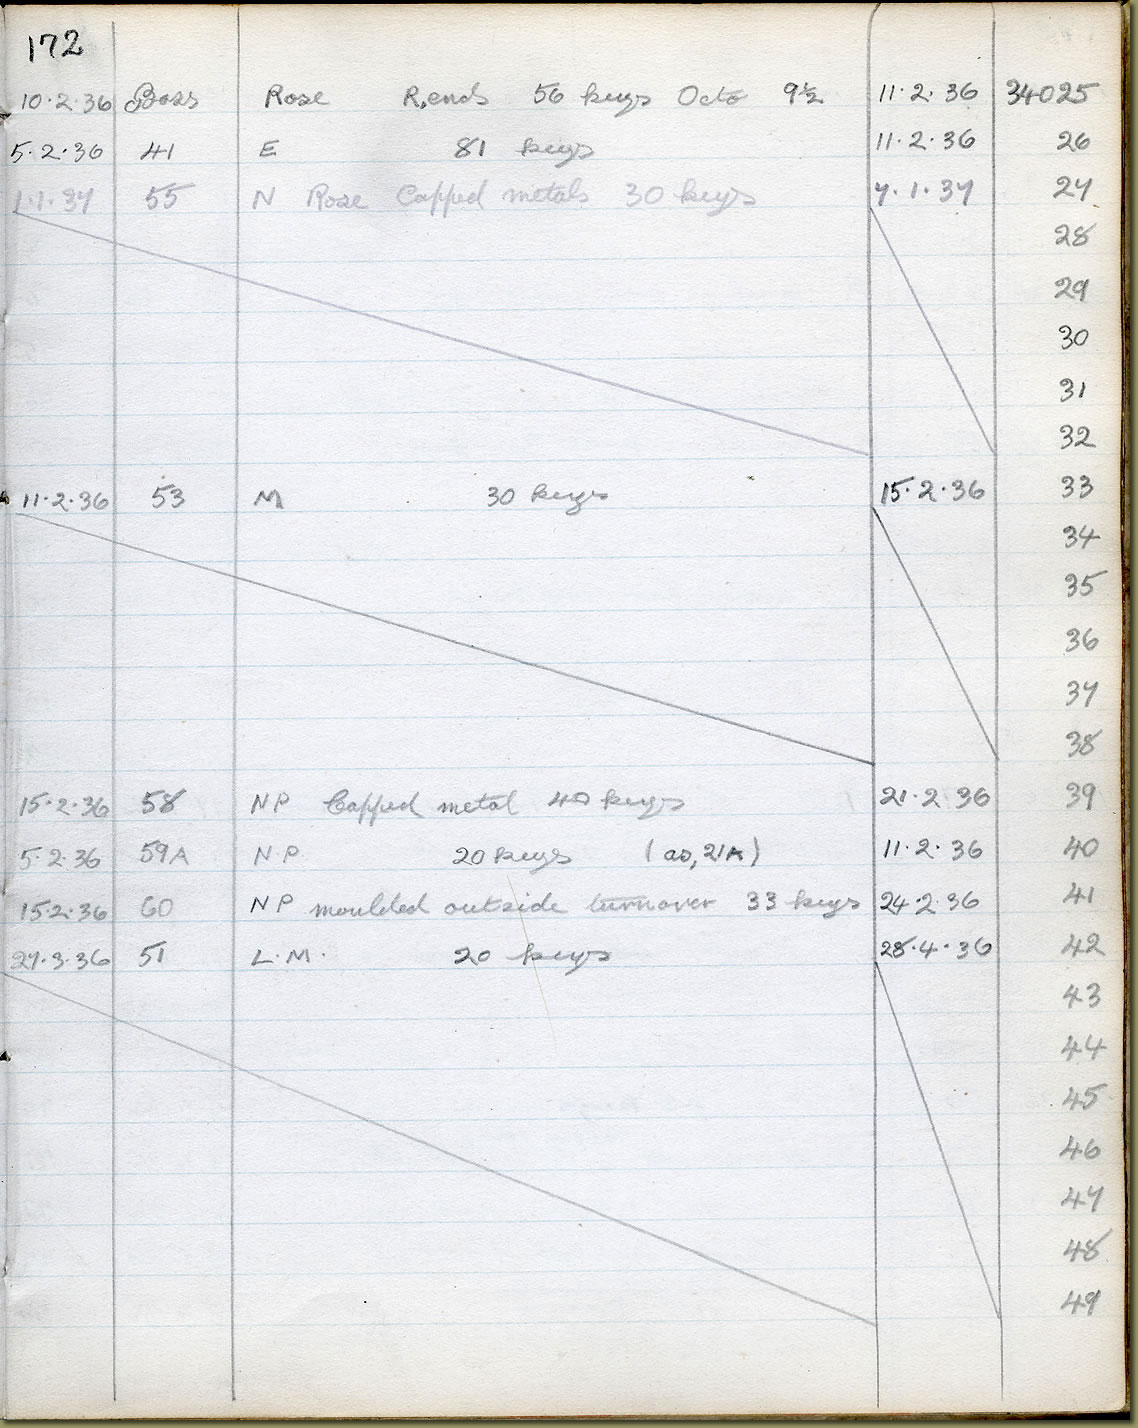 172
10·2·36 Bass Rose R,ends 56 keys Octo 9½ 11·2·36 34025
5·2·36 41 E 81 keys 11·2·36 26
1·1·37 55 N Rose Capped metals 30 keys 7·1·37 27
28
29
30
31
32
11·2·36 53 M 30 keys 15·2·36 33
34
35
36
37
38
15·2·36 58 NP Capped metal 40 keys 21·2·36 39
5·2·36 59A N.P. 20 keys (as, 21A) 11·2·36 40
15·2·36 60 NP moulded outside turnover 33 keys 24·2·36 41
27·3·36 51 L.M. 20 keys 28·4·36 42
43
44
45
46
47
48
49